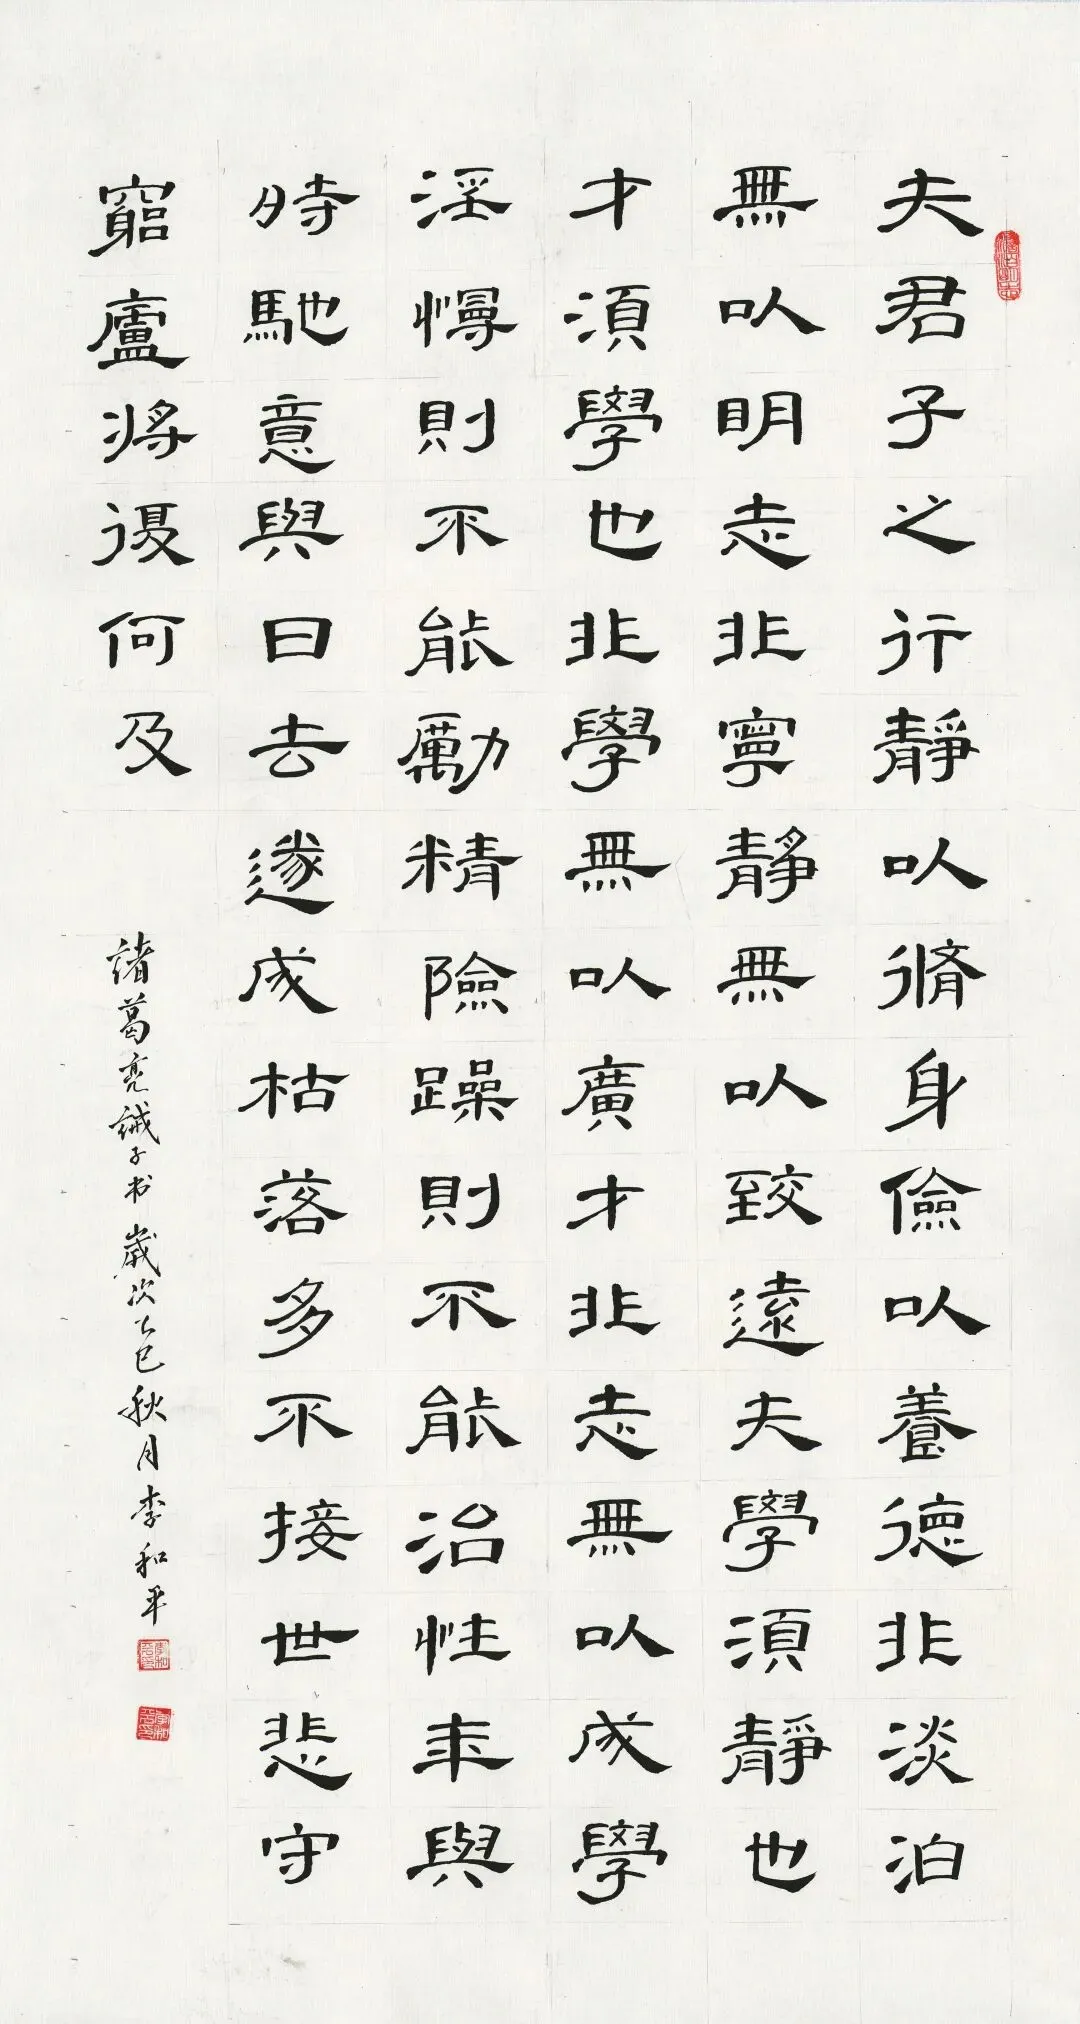 夫君子之行靜以脩身儉以養德非淡泊
無以明志非寧靜無以致遠夫學須靜也
才須學也非學無以廣才非志無以成學
淫慢則不能勵精險躁則不能治性年與
時馳意與日去遂成枯落多不接世悲守
窮廬將復何及
諸葛亮誡子书歲次乙巳秋月李和平